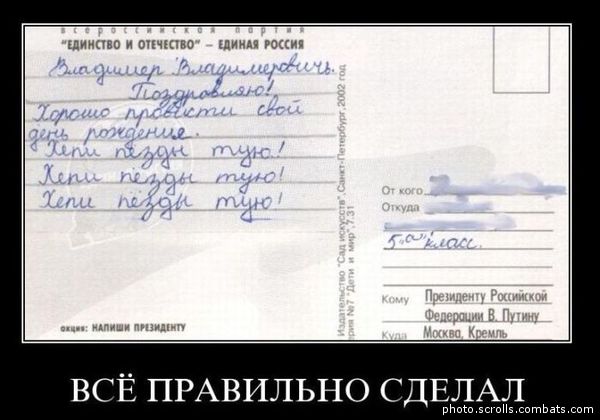 всероссийская партия
"ЕДИНСТВО И ОТЕЧЕСТВО" – ЕДИНАЯ РОССИЯ
Владимер Владимеровичь.
Поздравляю!
Хорошо провести свой
день рождение.
Хепи пёзды тую!
Хепи пёзды тую!
Хепи пёзды тую!
акция: НАПИШИ ПРЕЗИДЕНТУ
Издательство "Сад искусств", Санкт-Петербург, 2002 год
серия №7 "Дети и мир", 7.31
От кого
Откуда
5 „а" класс.
Кому Президенту Российской
Федерации В. Путину
Куда Москва, Кремль
ВСЁ ПРАВИЛЬНО СДЕЛАЛ
photo.scrolls.combats.com